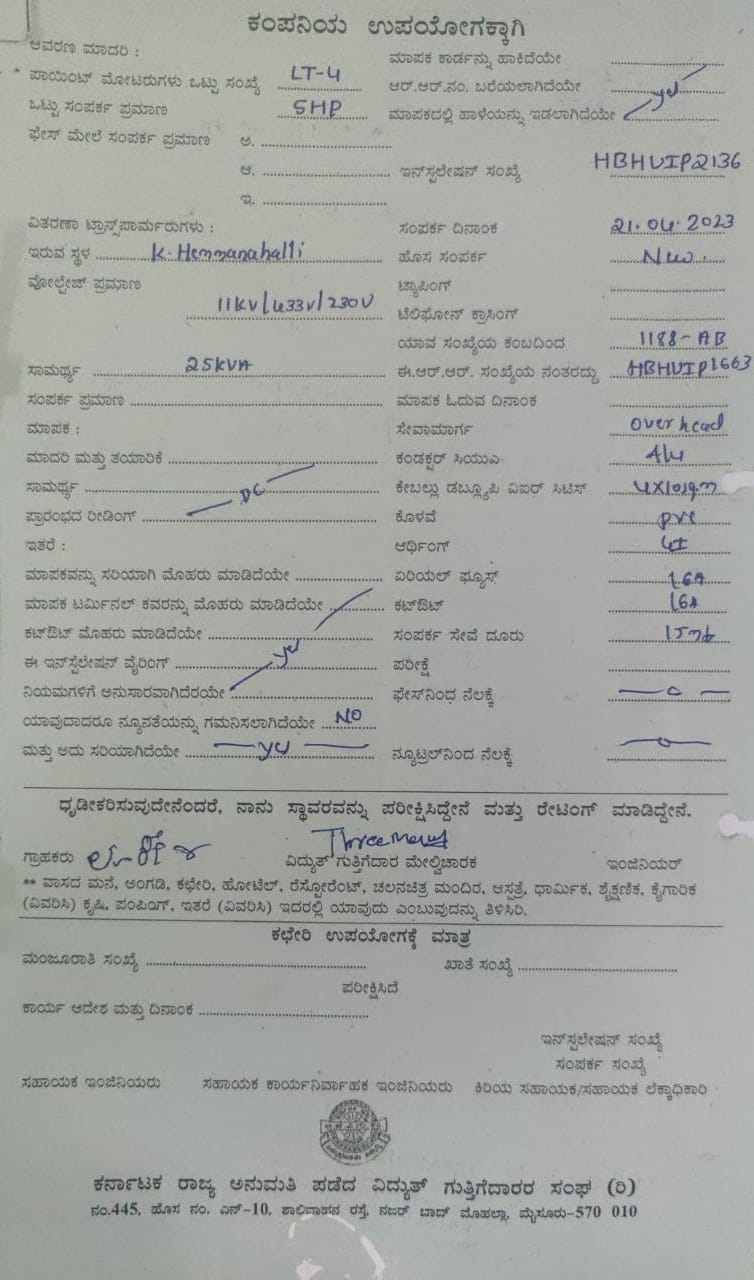 ಕಂಪನಿಯ ಉಪಯೋಗಕ್ಕಾಗಿ
ಆವರಣ ಮಾದರಿ : ಮಾಪಕ ಕಾರ್ಡನ್ನು ಹಾಕಿದೆಯೇ
* ಪಾಯಿಂಟ್ ಮೋಟರುಗಳು ಒಟ್ಟು ಸಂಖ್ಯೆ LT-4 ಆರ್.ಆರ್.ನಂ. ಬರೆಯಲಾಗಿದೆಯೇ
ಒಟ್ಟು ಸಂಪರ್ಕ ಪ್ರಮಾಣ 5HP ಮಾಪಕದಲ್ಲಿ ಹಾಳೆಯನ್ನು ಇಡಲಾಗಿದೆಯೇ yes
ಫೇಸ್ ಮೇಲೆ ಸಂಪರ್ಕ ಪ್ರಮಾಣ ಅ.
ಆ. ಇನ್‌ಸ್ಟಲೇಷನ್ ಸಂಖ್ಯೆ HBHUIP2136
ಇ.
ವಿತರಣಾ ಟ್ರಾನ್ಸ್‌ಪಾರ್ಮರುಗಳು : ಸಂಪರ್ಕ ದಿನಾಂಕ 21.04.2023
ಇರುವ ಸ್ಥಳ K.Hemmanahalli ಹೊಸ ಸಂಪರ್ಕ New.
ವೋಲ್ಟೇಜ್ ಪ್ರಮಾಣ ಟ್ಯಾಪಿಂಗ್
11KV/433V/230V ಟೆಲಿಫೋನ್ ಕ್ರಾಸಿಂಗ್
ಯಾವ ಸಂಖ್ಯೆಯ ಕಂಬದಿಂದ 1188-AB
ಸಾಮರ್ಥ್ಯ 25KVA ಈ.ಆರ್.ಆರ್. ಸಂಖ್ಯೆಯ ನಂತರದ್ದು HBHUIP1663
ಸಂಪರ್ಕ ಪ್ರಮಾಣ ಮಾಪಕ ಓದುವ ದಿನಾಂಕ
ಮಾಪಕ : ಸೇವಾಮಾರ್ಗ Over head
ಮಾದರಿ ಮತ್ತು ತಯಾರಿಕೆ ಕಂಡಕ್ಟರ್ ಸಿಯುಎ Alu
ಸಾಮರ್ಥ್ಯ DC ಕೇಬಲ್ಲು ಡಬ್ಲ್ಯೂಪಿ ವಿಐರ್ ಸಿಟಿಸ್ 4X10sqm
ಪ್ರಾರಂಭದ ರೀಡಿಂಗ್ ಕೊಳವೆ pvc
ಇತರೆ : ಆರ್ಥಿಂಗ್ GI
ಮಾಪಕವನ್ನು ಸರಿಯಾಗಿ ಮೊಹರು ಮಾಡಿದೆಯೇ ಏರಿಯಲ್ ಫ್ಯೂಸ್ 16A
ಮಾಪಕ ಟರ್ಮಿನಲ್ ಕವರನ್ನು ಮೊಹರು ಮಾಡಿದೆಯೇ ಕಟ್‌ಔಟ್ 16A
ಕಟ್‌ಔಟ್ ಮೊಹರು ಮಾಡಿದೆಯೇ yes ಸಂಪರ್ಕ ಸೇವೆ ದೂರು
ಈ ಇನ್‌ಸ್ಟೆಲೇಷನ್ ವೈರಿಂಗ್ ಪರೀಕ್ಷೆ
ನಿಯಮಗಳಿಗೆ ಅನುಸಾರವಾಗಿದೆರಯೇ ಫೇಸ್‌ನಿಂದ ನೆಲಕ್ಕೆ — 0 —
ಯಾವುದಾದರೂ ನ್ಯೂನತೆಯನ್ನು ಗಮನಿಸಲಾಗಿದೆಯೇ NO
ಮತ್ತು ಅದು ಸರಿಯಾಗಿದೆಯೇ — yes — ನ್ಯೂಟ್ರಲ್‌ನಿಂದ ನೆಲಕ್ಕೆ — 0 —
ಧೃಡೀಕರಿಸುವುದೇನೆಂದರೆ, ನಾನು ಸ್ಥಾವರವನ್ನು ಪರೀಕ್ಷಿಸಿದ್ದೇನೆ ಮತ್ತು ರೇಟಿಂಗ್ ಮಾಡಿದ್ದೇನೆ.
ಗ್ರಾಹಕರು ವಿದ್ಯುತ್ ಗುತ್ತಿಗೆದಾರ ಮೇಲ್ವಿಚಾರಕ ಇಂಜಿನಿಯರ್
** ವಾಸದ ಮನೆ, ಅಂಗಡಿ, ಕಛೇರಿ, ಹೋಟೆಲ್, ರೆಸ್ಟೋರೆಂಟ್, ಚಲನಚಿತ್ರ ಮಂದಿರ, ಆಸ್ಪತ್ರೆ, ಧಾರ್ಮಿಕ, ಶೈಕ್ಷಣಿಕ, ಕೈಗಾರಿಕ
(ವಿವರಿಸಿ) ಕೃಷಿ, ಪಂಪಿಂಗ್, ಇತರೆ (ವಿವರಿಸಿ) ಇದರಲ್ಲಿ ಯಾವುದು ಎಂಬುವುದನ್ನು ತಿಳಿಸಿರಿ.
ಕಛೇರಿ ಉಪಯೋಗಕ್ಕೆ ಮಾತ್ರ
ಮಂಜೂರಾತಿ ಸಂಖ್ಯೆ ಖಾತೆ ಸಂಖ್ಯೆ
ಪರೀಕ್ಷಿಸಿದೆ
ಕಾರ್ಯ ಆದೇಶ ಮತ್ತು ದಿನಾಂಕ
ಇನ್‌ಸ್ಟಲೇಷನ್ ಸಂಖ್ಯೆ
ಸಂಪರ್ಕ ಸಂಖ್ಯೆ
ಸಹಾಯಕ ಇಂಜಿನಿಯರು ಸಹಾಯಕ ಕಾರ್ಯನಿರ್ವಾಹಕ ಇಂಜಿನಿಯರು ಕಿರಿಯ ಸಹಾಯಕ/ಸಹಾಯಕ ಲೆಕ್ಕಾಧಿಕಾರಿ
ಕರ್ನಾಟಕ ರಾಜ್ಯ ಅನುಮತಿ ಪಡೆದ ವಿದ್ಯುತ್ ಗುತ್ತಿಗೆದಾರರ ಸಂಘ (ರಿ)
ನಂ.445, ಹೊಸ ನಂ. ಎನ್-10, ಶಾಲಿವಾಹನ ರಸ್ತೆ, ನಜರ್ ಬಾದ್ ಮೊಹಲ್ಲಾ, ಮೈಸೂರು-570 010